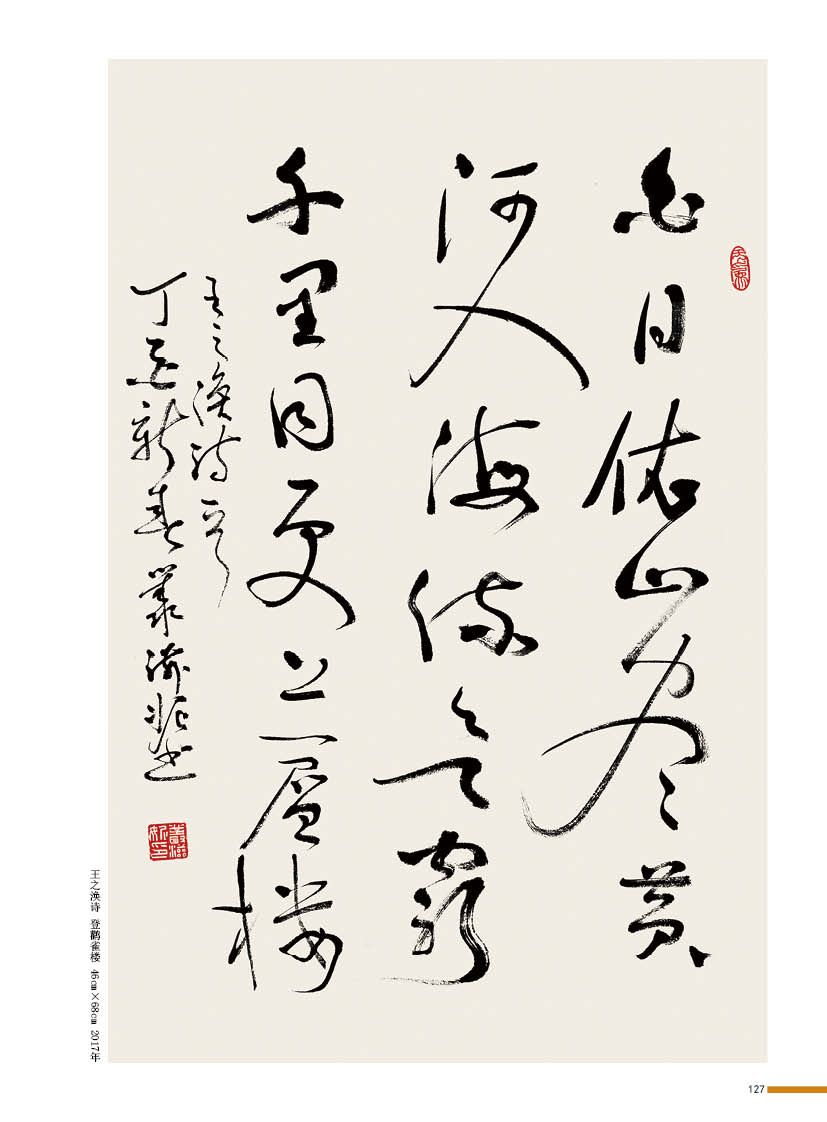 白日依山尽黄
河入海流欲窮
千里目更上一層楼
王之涣诗
丁酉新春叢滋书
王之涣诗 登鹳雀楼 46cm×68cm 2017年
127